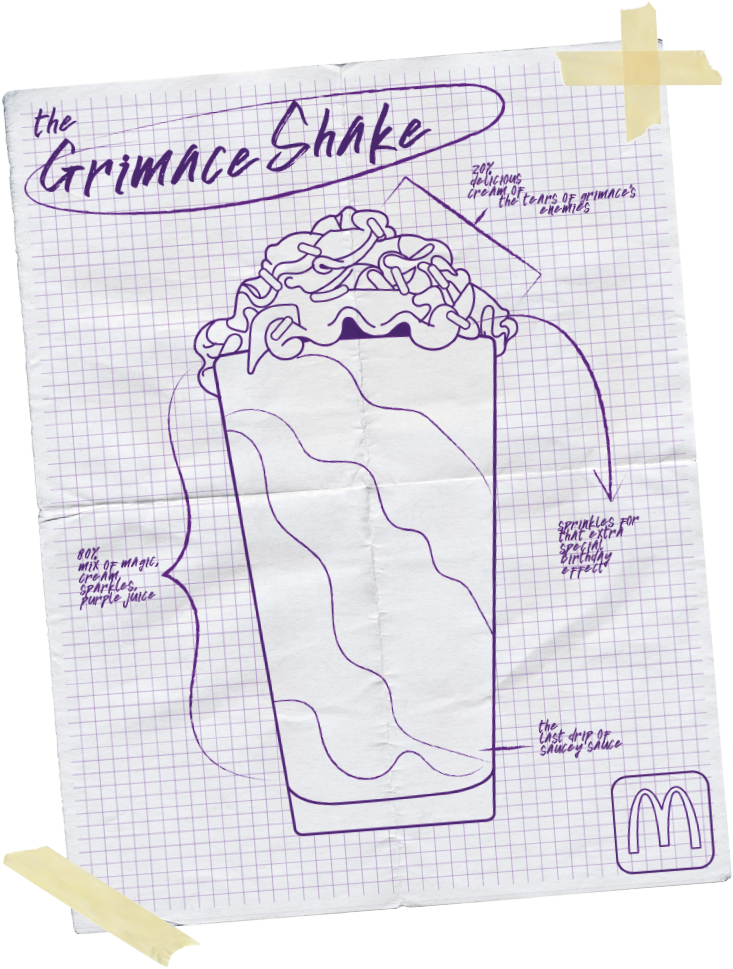 the
Grimace Shake
20%
delicious
cream of
the tears of grimace's
enemies
sprinkles for
that extra
special
birthday
effect
80%
mix of magic,
cream,
sparkles,
purple juice
the
last drip of
saucey sauce